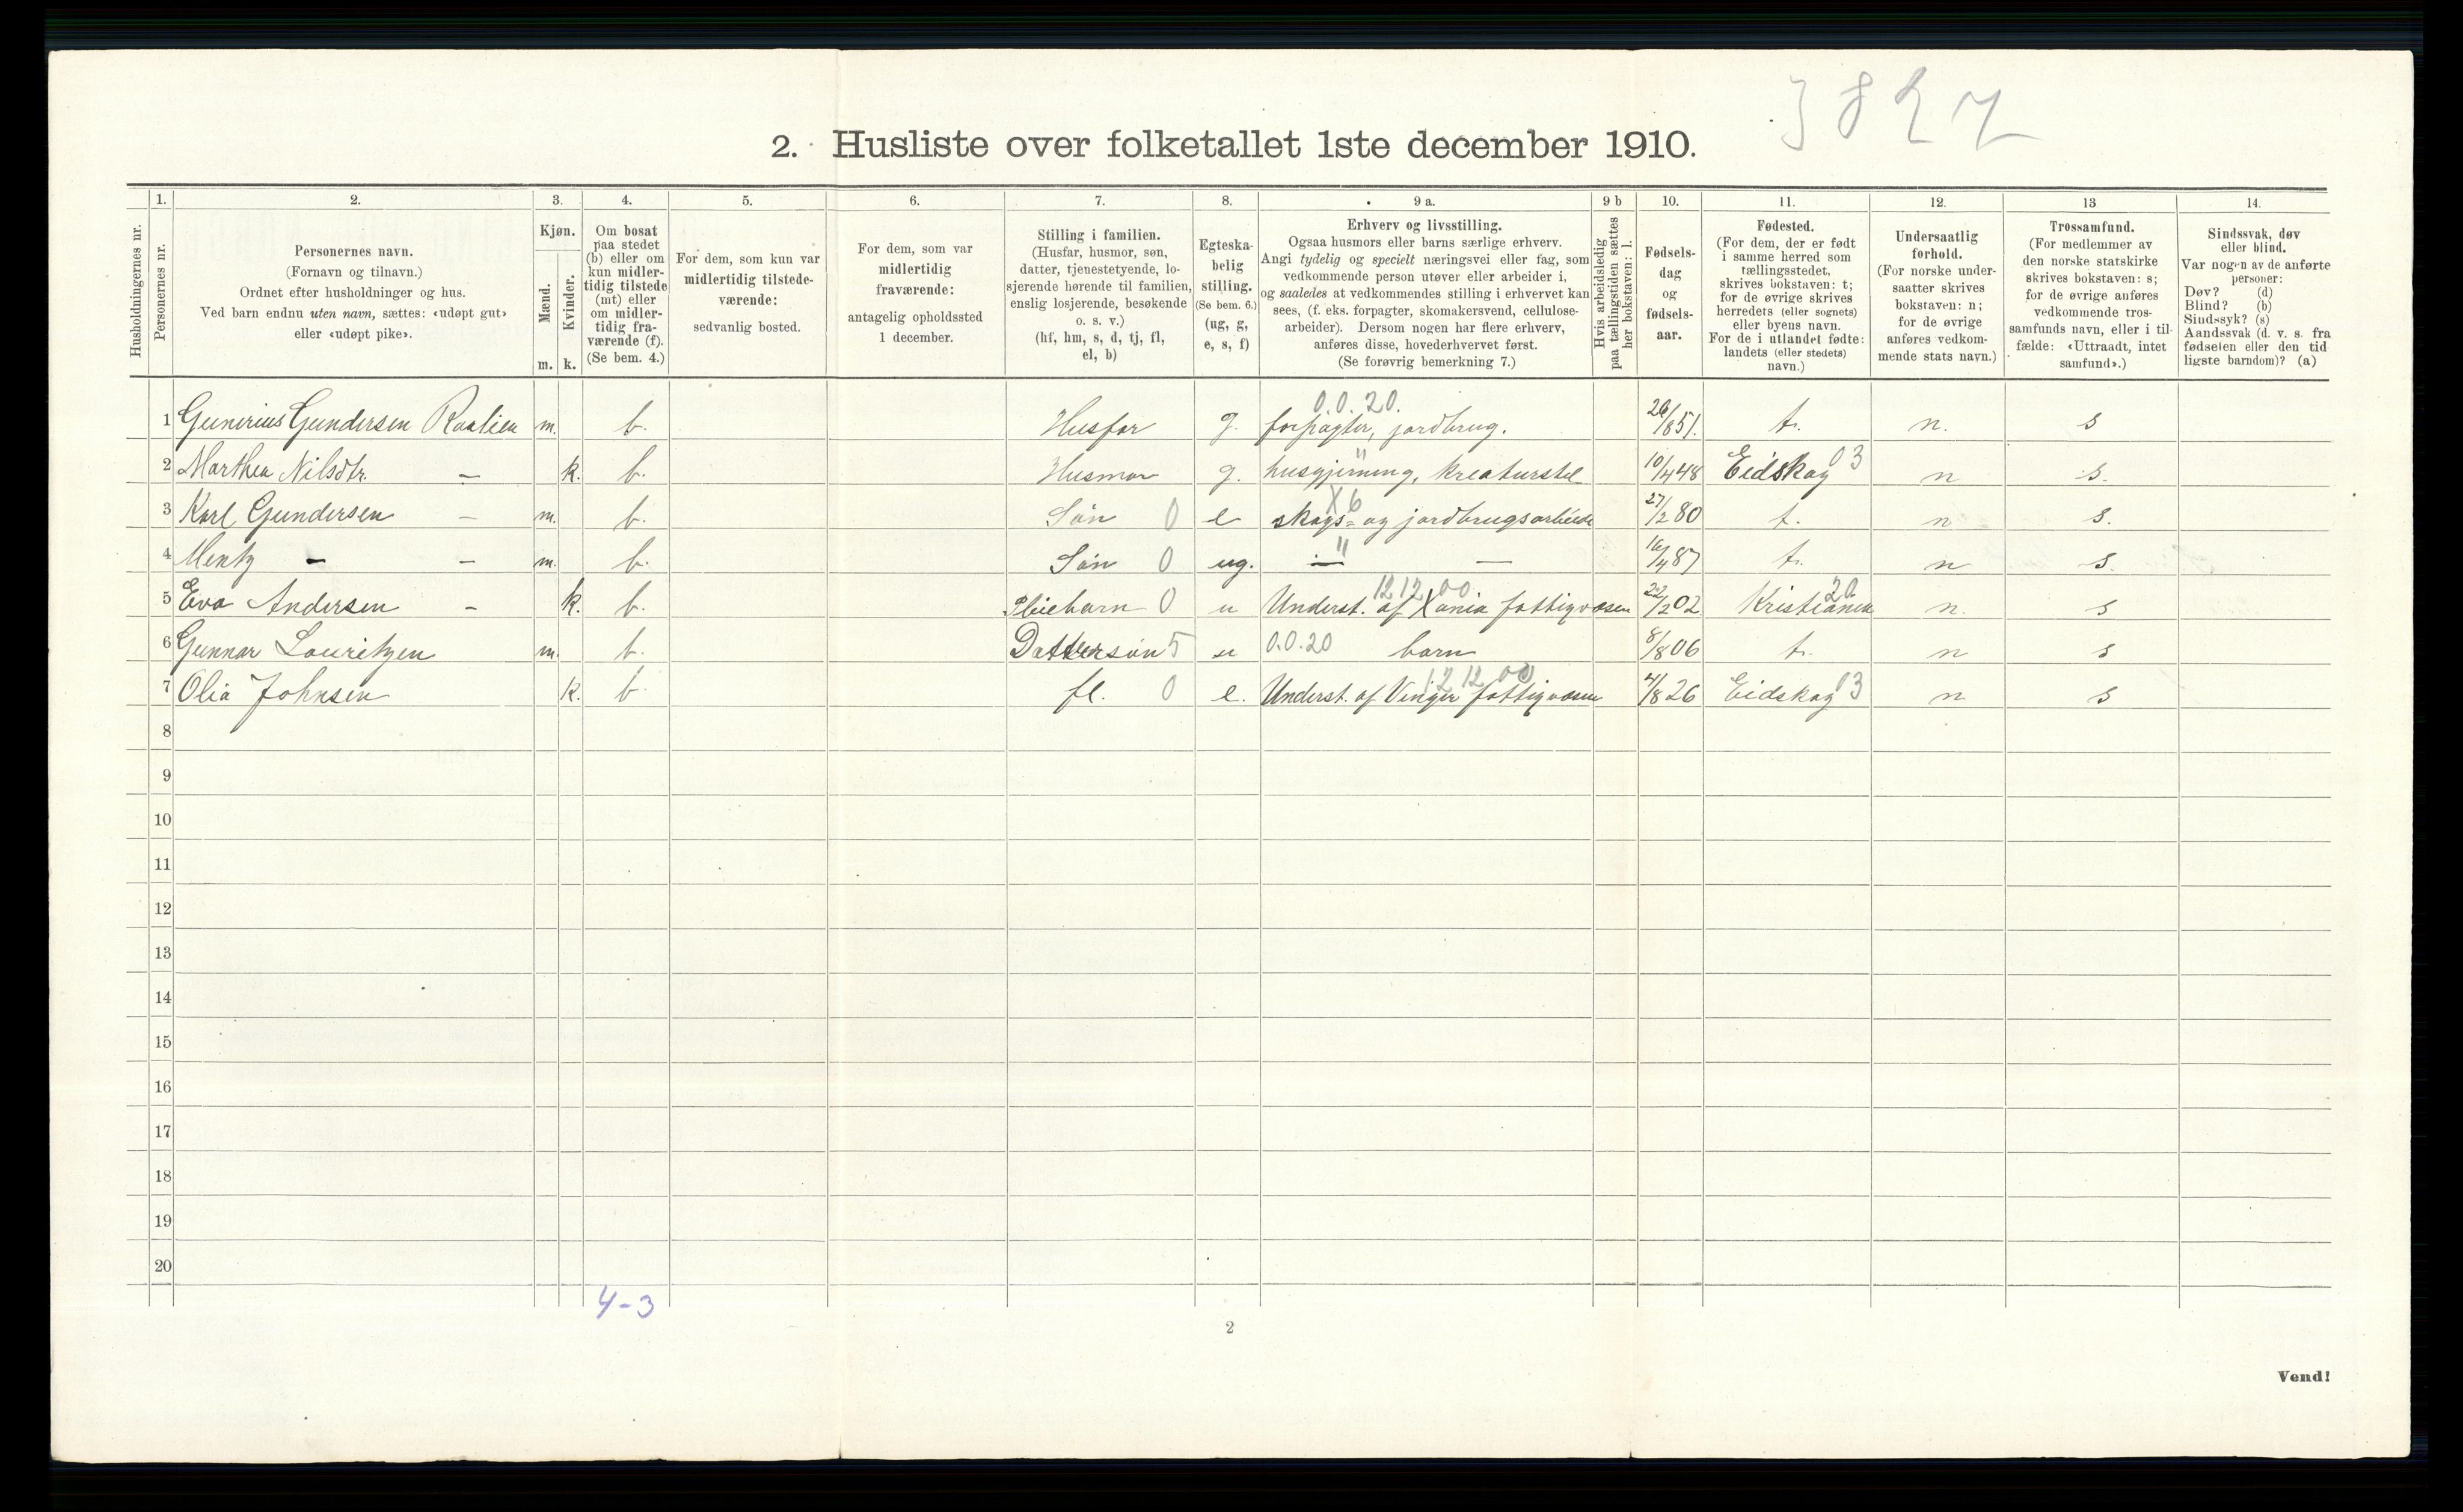 3827
2. Husliste over folketallet 1ste december 1910.
Husholdningernes nr.
1.
Personernes nr.
2.
Personernes navn.
(Fornavn og tilnavn.)
Ordnet efter husholdninger og hus.
Ved barn endnu uten navn, sættes: «udøpt gut»
eller «udøpt pike».
3.
Kjøn.
Mænd.
Kvinder.
m. k.
4.
Om bosat
paa stedet
(b) eller om
kun midler-
tidig tilstede
(mt) eller
om midler-
tidig fra-
værende (f).
(Se bem. 4.)
5.
For dem, som kun var
midlertidig tilstede-
værende:
sedvanlig bosted.
6.
For dem, som var
midlertidig
fraværende:
antagelig opholdssted
1 december.
7.
Stilling i familien.
(Husfar, husmor, søn,
datter, tjenestetyende, lo-
sjerende hørende til familien,
enslig losjerende, besøkende
o. s. v.)
(hf, hm, s, d, tj, fl,
el, b)
8.
Egteska-
belig
stilling.
(Se bem. 6.)
(ug, g,
e, s, f)
9 a.
Erhverv og livsstilling.
Ogsaa husmors eller barns særlige erhverv.
Angi tydelig og specielt næringsvei eller fag, som
vedkommende person utøver eller arbeider i,
og saaledes at vedkommendes stilling i erhvervet kan
sees, (f. eks. forpagter, skomakersvend, cellulose-
arbeider). Dersom nogen har flere erhverv,
anføres disse, hovederhvervet først.
(Se forøvrig bemerkning 7.)
9 b
Hvis arbeidsledig
paa tællingstiden sættes
her bokstaven: l.
10.
Fødsels-
dag
og
fødsels-
aar.
11.
Fødested.
(For dem, der er født
i samme herred som
tællingsstedet,
skrives bokstaven: t;
for de øvrige skrives
herredets (eller sognets)
eller byens navn.
For de i utlandet fødte:
landets (eller stedets)
navn.)
12.
Undersaatlig
forhold.
(For norske under-
saatter skrives
bokstaven: n;
for de øvrige
anføres vedkom-
mende stats navn.)
13
Trossamfund.
(For medlemmer av
den norske statskirke
skrives bokstaven: s;
for de øvrige anføres
vedkommende tros-
samfunds navn, eller i til-
fælde: «Uttraadt, intet
samfund».)
14.
Sindssvak, døv
eller blind.
Var nogen av de anførte
personer:
Døv? (d)
Blind? (b)
Sindssyk? (s)
Aandssvak (d. v. s. fra
fødselen eller den tid
ligste barndom)? (a)
0.0.20.
1 Gunerius Gundersen Raalien m. b. Husfar g. forpagter, jordbrug. 26/8 51. t. n. s
2 Marthea Nilsdtr. — k. b. Husmor g. husgjerning, kreaturstel 10/4 48 Eidskog 03 n s.
X6
3 Karl Gundersen — m. b. Søn 0 e skogs- og jordbrugsarbeide 27/2 80 t. n s.
4 Mentz — — m. b. Søn 0 ug. — " — 16/4 87 t. n s.
12 12 00 20
5 Eva Andersen — k. b. Pleiebarn 0 u Underst. af Xania fattigvæsen 22/2 02 Kristiania n. s
6 Gunnar Lauritzen m. b. Dattersøn 5 u 0.0.20 barn 8/8 06 t. n s
12 12 00
7 Olia Johnsen k. b. fl. 0 e. Underst. af Vinger fattigvæsen 4/8 26 Eidskog 03 n s
8
9
10
11
12
13
14
15
16
17
18
19
20
4-3
2
Vend!